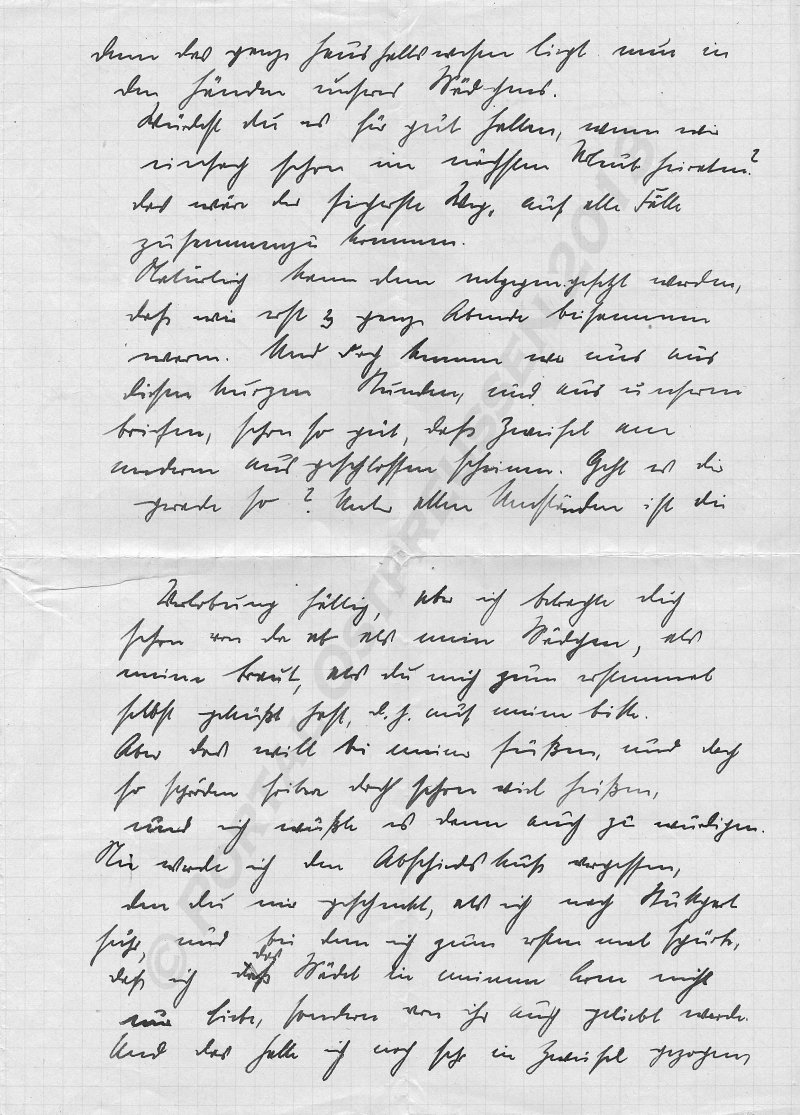 denn das ganze Haushaltswesen liegt nun in
den Händen unseres Mädchens.
Würdest du es für gut halten, wenn wir
einfach schon im nächsten Urlaub heiraten?
das wäre der sicherste Weg, auf alle Fälle
zusammenzukommen.
Natürlich kann dem entgegengesetzt werden,
daß wir erst 3 ganze Abende beisammen
waren. Und doch kennen wir uns aus
diesen kurzen Stunden, und aus unseren
briefen, schon so gut, daß Zweifel am
anderen ausgeschlossen scheinen. Geht es dir
gerade so? Unter allen Umständen ist die
Verlobung fällig, aber ich betrachte dich
schon von da ab als mein Mädchen, als
meine braut, als du mich zum erstenmal
selbst geküßt hast, d.h. auf meine bitte.
Aber das will bei meiner süßen, und doch
so spröden doch schon viel heißen,
und ich wußte es denn auch zu würdigen.
Nie werde ich den Abschiedskuß vergessen,
den du mir geschenkt, als ich nach Stuttgart
fuhr, und bei dem ich zum ersten mal spürte,
daß ich das Mädel in meinem Arm nicht
nur liebe, sondern von ihr auch geliebt werde.
Und das hatte ich noch sehr in Zweifel gezogen
© PORTA OSTPREUSSEN 2013